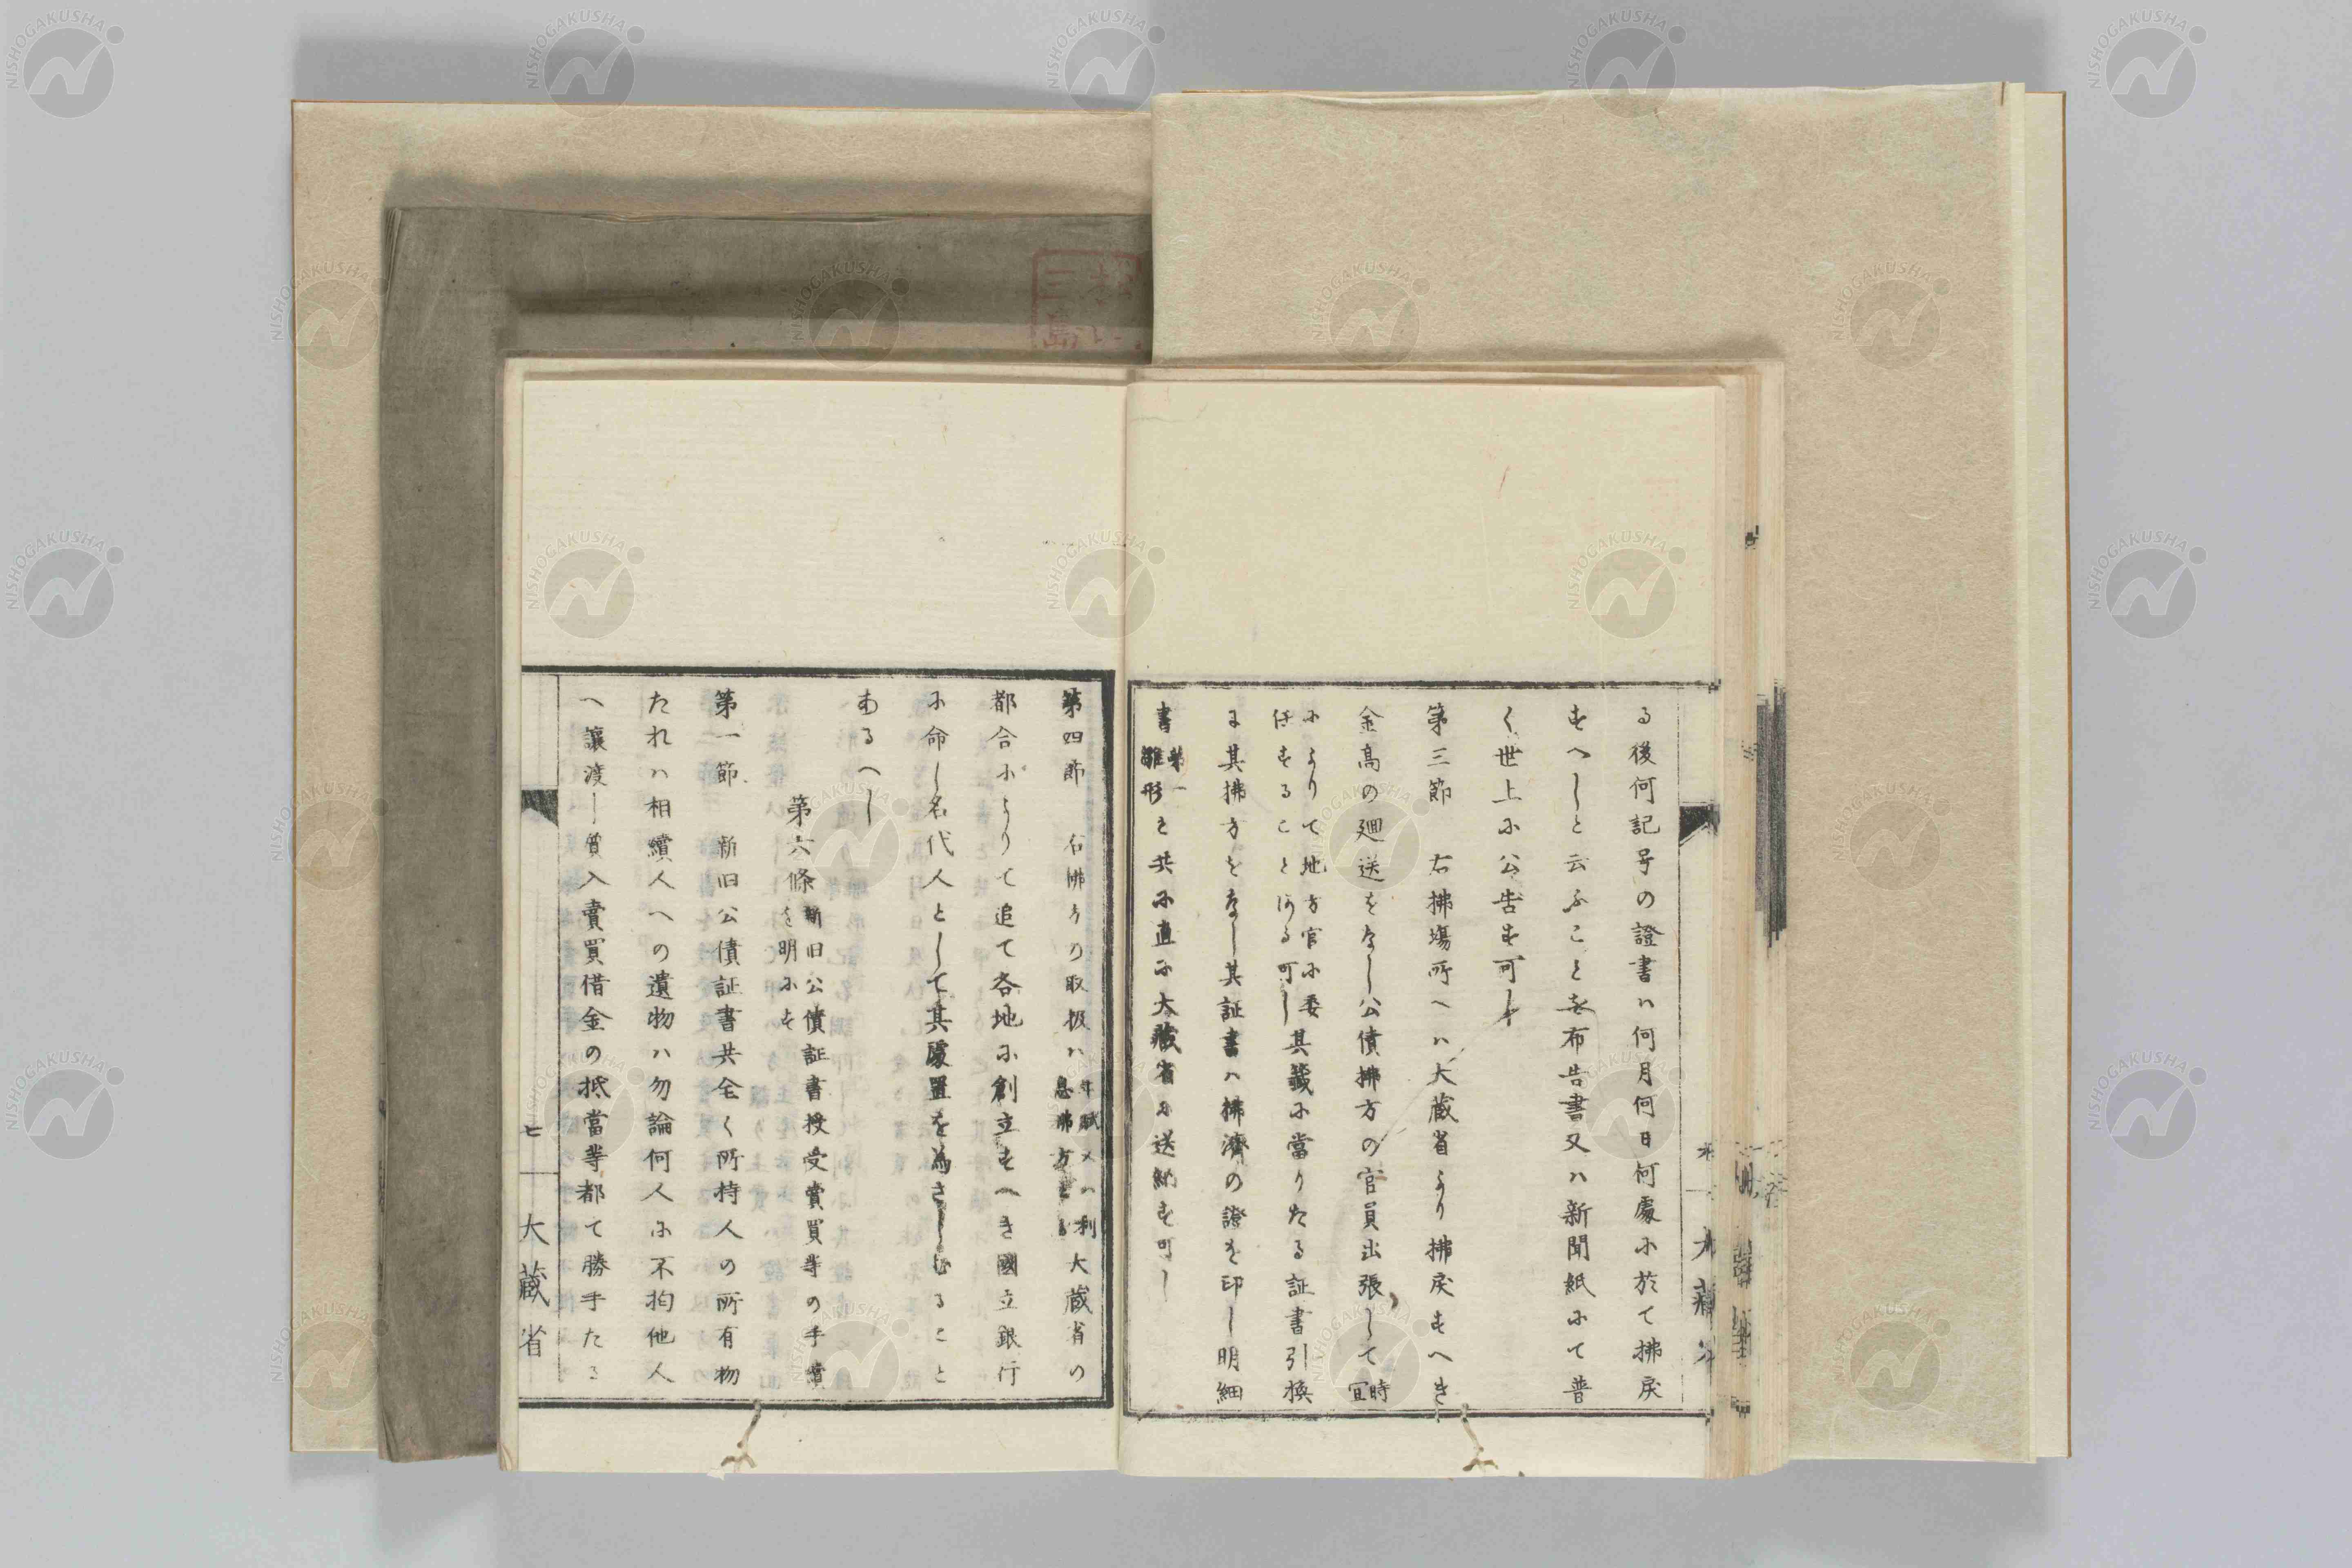 る後何記号の證書ハ何月何日何處に於て拂戻
すへしと云ふことを布告書又ハ新聞紙にて普
く世上に公告す可し
第三節 右拂場所へハ大蔵省より拂戻すへき
金高の廻送をなし公債拂方の官員出張して 時宜
により地方官に委
任することある可し 其籤に當りたる証書引換
に其拂方をなし其証書ハ拂濟の證を印し明細
書 第一
雛形 と共に直に大蔵省に送納す可し
第四節 右拂方の取扱ハ 年賦又ハ利
息拂方とも 大蔵省の
都合によりて追て各地に創立すへき國立銀行
に命し名代人として其處置を為さしむること
あるへし
第六條 新旧公債証書授受賣買等の手續
を明にす
第一節 新旧公債証書共全く所持人の所有物
たれハ相續人への遺物ハ勿論何人に不拘他人
へ讓渡し質入賣買借金の抵當等都て勝手たる
七
大蔵省
NISHOGAKUSHA